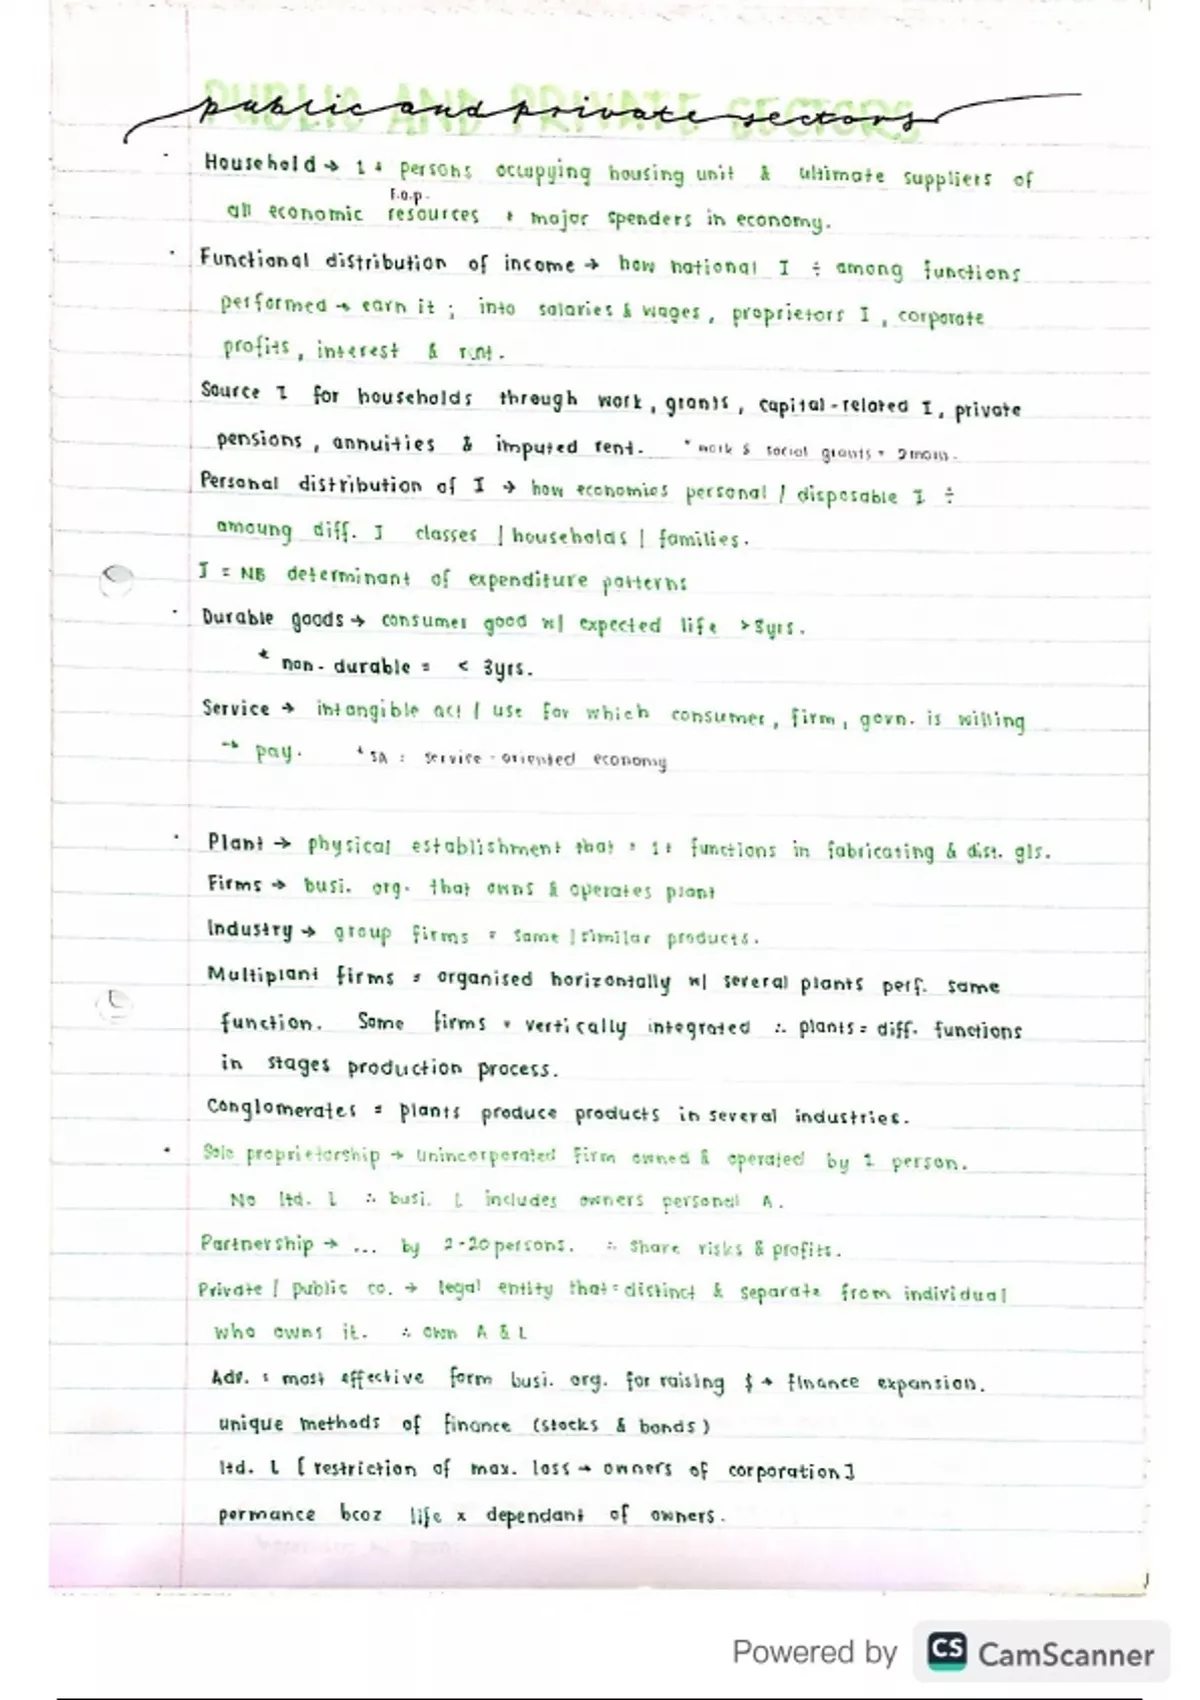 PUBLIC AND PRIVATE SECTORS
public and private sectors
· Household → 1+ persons occupying housing unit & ultimate suppliers of
f.o.p.
all economic resources + major spenders in economy.
· Functional distribution of income → how national I ÷ among functions
performed → earn it ; into salaries & wages, proprietors I, corporate
profits, interest & rent.
Source I for households through work, grants, capital-related I, private
pensions, annuities & imputed rent. * work & social grants =
Personal distribution of I → how economies personal / disposable I ÷
amoung diff. I classes | households | families.
I = NB determinant of expenditure patterns
· Durable goods → consumer good w| expected life > 3yrs.
* non-durable = < 3yrs.
Service → intangible act / use for which consumer, firm, govn. is willing
→ pay. * SA : service-oriented economy
· Plant → physical establishment that = 1+ functions in fabricating & dist. g|s.
Firms → busi. org. that owns & operates plant
Industry → group firms = same | similar products.
Multiplant firms = organised horizontally w| several plants perf. same
function. Some firms = vertically integrated ∴ plants = diff. functions
in stages production process.
Conglomerates = plants produce products in several industries.
· Sole proprietorship → unincorporated firm owned & operated by 1 person.
No ltd. L ∴ busi. L includes owners personal A.
Partnership → ... by 2-20 persons. ∴ share risks & profits.
Private / public co. → legal entity that = distinct & separate from individual
who owns it. ∴ own A & L
Adv. : most effective form busi. org. for raising $ → finance expansion.
unique methods of finance (stocks & bonds)
ltd. L [restriction of max. loss → owners of corporation]
permance bcoz life x dependant of owners.
Powered by CS CamScanner